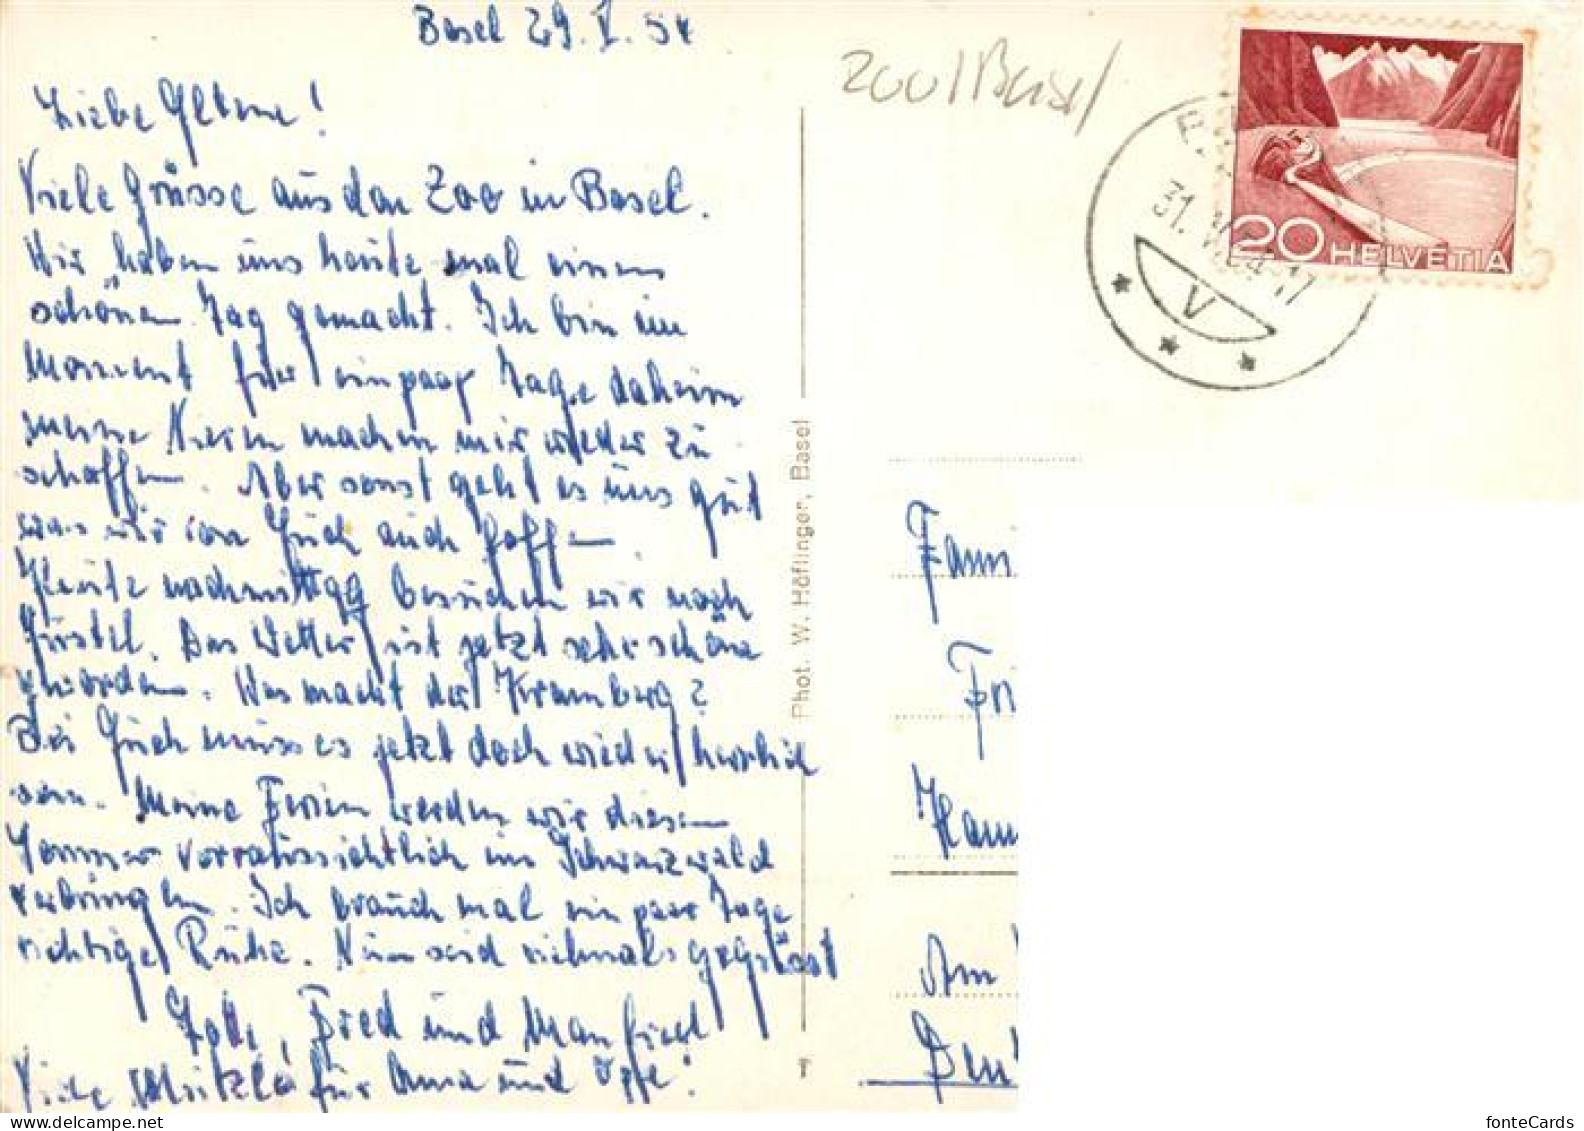 Basel 29. V. 54
Zoo/Basel
Liebe Eltern!
Viele Grüsse aus dem Zoo in Basel.
Wir haben uns heute mal einen
schönen Tag gemacht. Ich bin im
Moment für ein paar Tage daheim
meine Nieren machen mir wieder zu
schaffen. Aber sonst geht es uns gut
was wir von Euch auch hoffen.
Heute nachmittag besuchen wir noch
Das Wetter ist jetzt sehr schön
geworden. Was macht der Kramberg?
Bei Euch muss es jetzt doch wieder herrlich
sein. Meine Ferien werden wir diesen
Sommer vorraussichtlich im Schwarzwald
verbringen. Ich brauch mal ein paar Tage
richtige Ruhe. Nun seid vielmals gegrüsst
Fred und Manfred
Viele für Oma und
Phot. W. Höflinger, Basel
31. V. 54-17
V
20 HELVETIA
Fam
Fri
Ham
Am
Deu
fonteCards